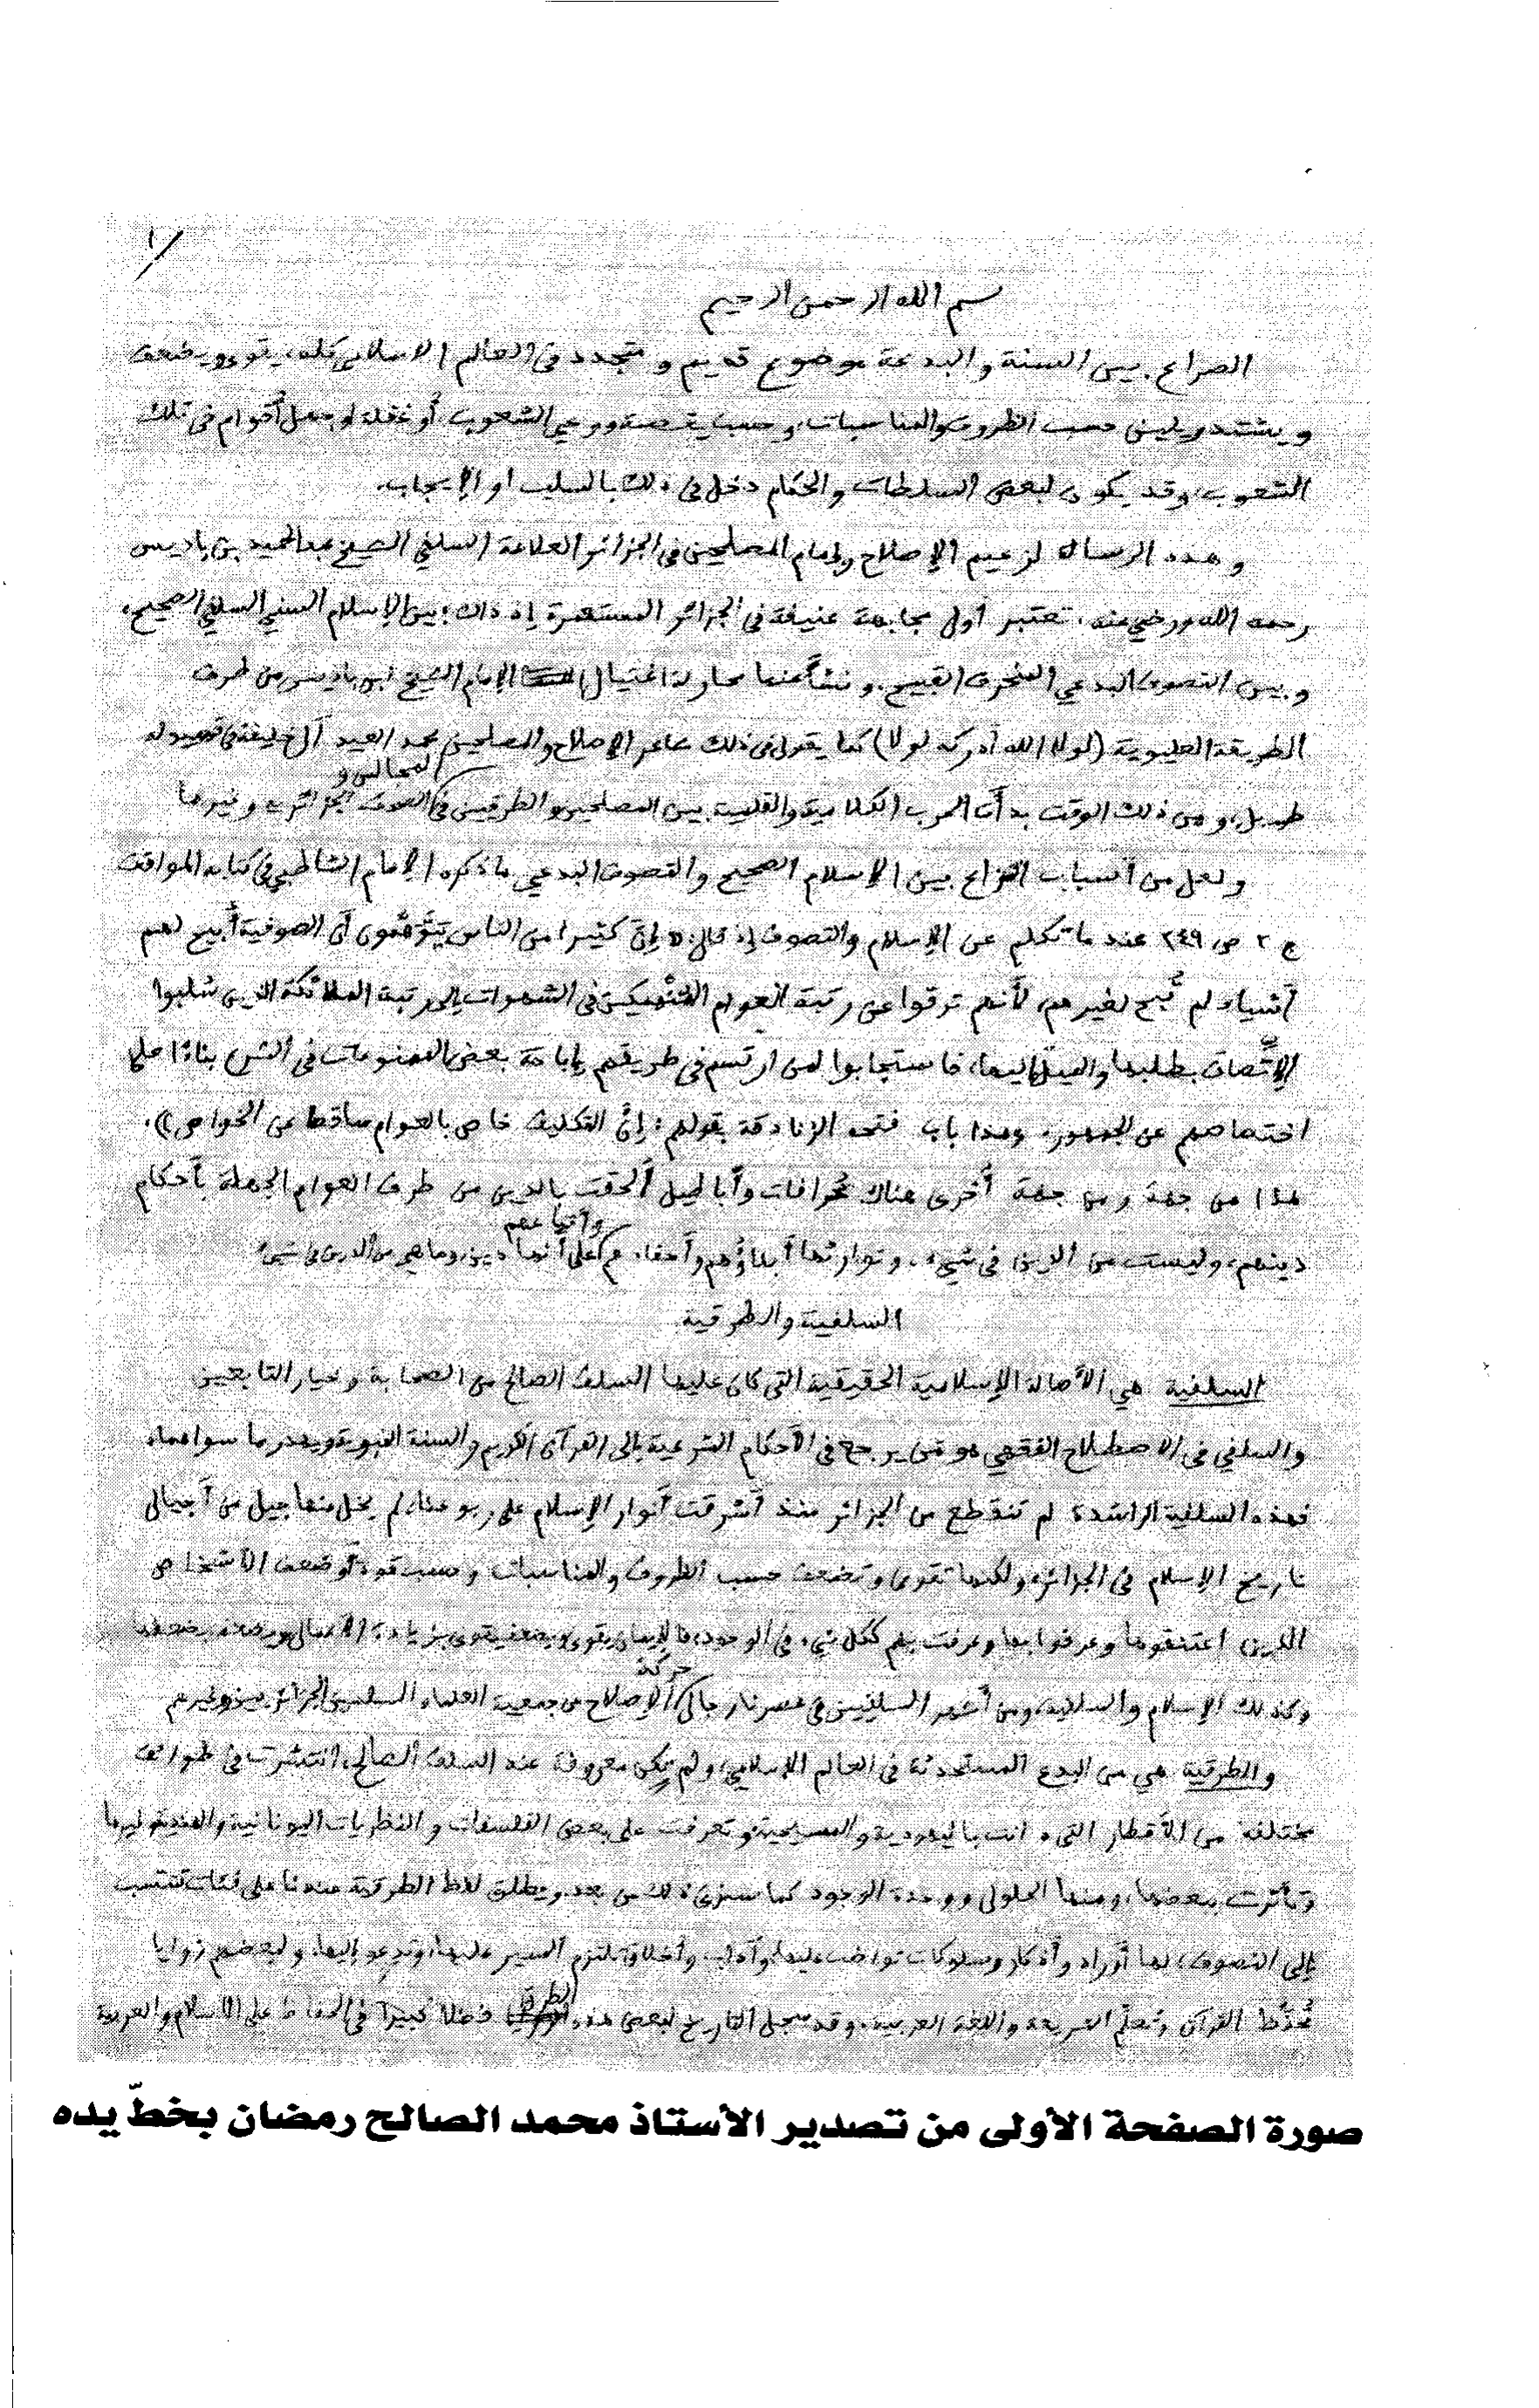 ١/
بسم الله الرحمن الرحيم
الصراع بين السنة والبدعة موضوع قديم ومتجدد في العالم الاسلامي كله، يقوى ويضعف
ويشتد ويلين حسب الظروف والمناسبات، وحسب يقظة ووعي الشعوب أو غفلة أو جهل أقوام في تلك
الشعوب، وقد يكون لبعض السلطات والحكام دخل في ذلك بالسلب او الإيجاب.
وهذه الرسالة لزعيم الإصلاح وإمام المصلحين في الجزائر العلامة السلفي الشيخ عبد الحميد بن باديس
رحمه الله ورضي عنه، تعتبر أول مجابهة عنيفة في الجزائر المستعمرة إذ ذاك؛ بين الإسلام السني السلفي الصحيح،
وبين التصوف البدعي المنحرف القبيح. ونشأ عنها محاولة اغتيال الإمام الشيخ ابن باديس من طرف
الطريقة العليوية (لولا الله أدركه لولا) كما يقول في ذلك شاعر الإصلاح والمصلحين محمد العيد آل خليفة في قصيد له
طويل، ومن ذلك الوقت بدأت الحرب الكلامية والقلمية بين المصلحين والطرقيين في المجالس والصحف الجزائرية وغيرها
ولعل من أسباب النزاع بين الإسلام الصحيح والتصوف البدعي ما ذكره الإمام الشاطبي في كتابه الموافقات
ج ٢ ص ٢٤٩ عند ما تكلم عن الإسلام والتصوف إذ قال: «إن كثيرا من الناس يتوهمون أن الصوفية أبيح لهم
أشياء لم تبح لغيرهم، لأنهم ترقوا عن رتبة العوام المنهمكين في الشهوات إلى رتبة الملائكة الذين سُلبوا
الاتصاف بطلبها والميل إليها، فاستجابوا لمن ارتسم في طريقهم إباحة بعض الممنوعات في الشرع بناءًا على
اختصاصهم عن الجمهور. وهذا باب فتحه الزنادقة بقولهم: إن التكليف خاص بالعوام ساقط عن الخواص».
هذا من جهة ومن جهة أخرى هناك خرافات وأباطيل ألحقت بالدين من طرف العوام الجهلة بأحكام
دينهم، وليست من الدين في شيء، وتوارثها أبناؤهم وأحفادهم وأتباعهم على أنها دين، وما هي من الدين في شيء
السلفية والطرقية
السلفية هي الأصالة الإسلامية الحقيقية التي كان عليها السلف الصالح من الصحابة وخيار التابعين
والسلفي في الاصطلاح الفقهي هو من يرجع في الأحكام الشرعية إلى القرآن الكريم والسنة النبوية ويهدر ما سواهما،
فهذه السلفية الراشدة لم تنقطع من الجزائر منذ أشرقت أنوار الإسلام على ربوعها، لم يخل منها جيل من أجيال
تاريخ الإسلام في الجزائر، ولكنها تقوى وتضعف حسب الظروف والمناسبات وحسب قوة أو ضعف الأشخاص
الذين اعتنقوها وعرفوا بها وعرفت بهم ككل شيء في الوجود، فالإيمان يقوى ويضعف يقوى بزيادة الأعمال ويضعف بضعفها
وكذلك الإسلام والسلفية، ومن أشهر السلفيين في عصرنا رجال حركة الإصلاح من جمعية العلماء المسلمين الجزائريين وغيرهم
والطرقية هي من البدع المستحدثة في العالم الإسلامي، ولم تكن معروفة عند السلف الصالح، انتشرت في طوائف
مختلفة من الأقطار التي دانت باليهودية والمسيحية وتعرفت على بعض الفلسفات والنظريات اليونانية والهندية وغيرها
وتأثرت ببعضها، ومنها الحلول ووحدة الوجود كما سنرى ذلك من بعد. ويطلق لفظ الطرقية عندنا على فئات تنتسب
إلى التصوف، لها أوراد وأذكار وسلوكات تواظب عليها، وآداب وأخلاق تلتزم السير عليها، وتدعو إليها، ولبعضهم زوايا
تُحفّظ القرآن وتعلّم الشريعة واللغة العربية، وقد سجل التاريخ لبعض هذه الطرق فضلا كبيرًا في الحفاظ على الاسلام والعربية
صورة الصفحة الأولى من تصدير الأستاذ محمد الصالح رمضان بخطّ يده